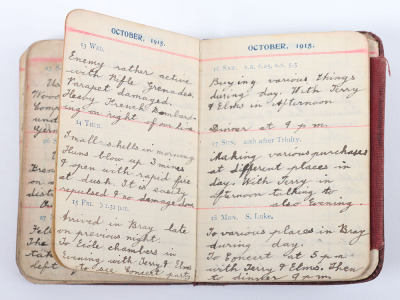 OCTOBER, 1915.
13 WED.
Enemy rather active
with Rifle Grenades.
Parapet damaged.
Heavy French Bombard-
ing on right of our line
14 THUR.
Small shells in morning
Huns blow up 3 mines
& open with rapid fire
at dusk. It is easily
repulsed & no damage done
15 FRI.
Arrived in Bray late
on previous night.
To chambers in
Evening with Terry & Elms
to see Concert party
OCTOBER, 1915.
16 SAT.
Buying various things
during day. With Terry
& Elms in Afternoon
Dinner at 9 p.m.
17 SUN. 20th after Trinity.
Making various purchases
at different places in
day. With Terry in
afternoon talking to
also Evening
18 MON. S. Luke.
To various places in Bray
during day.
To Concert at 5 p.m
with Terry & Elms. Then
to dinner 9 p.m.